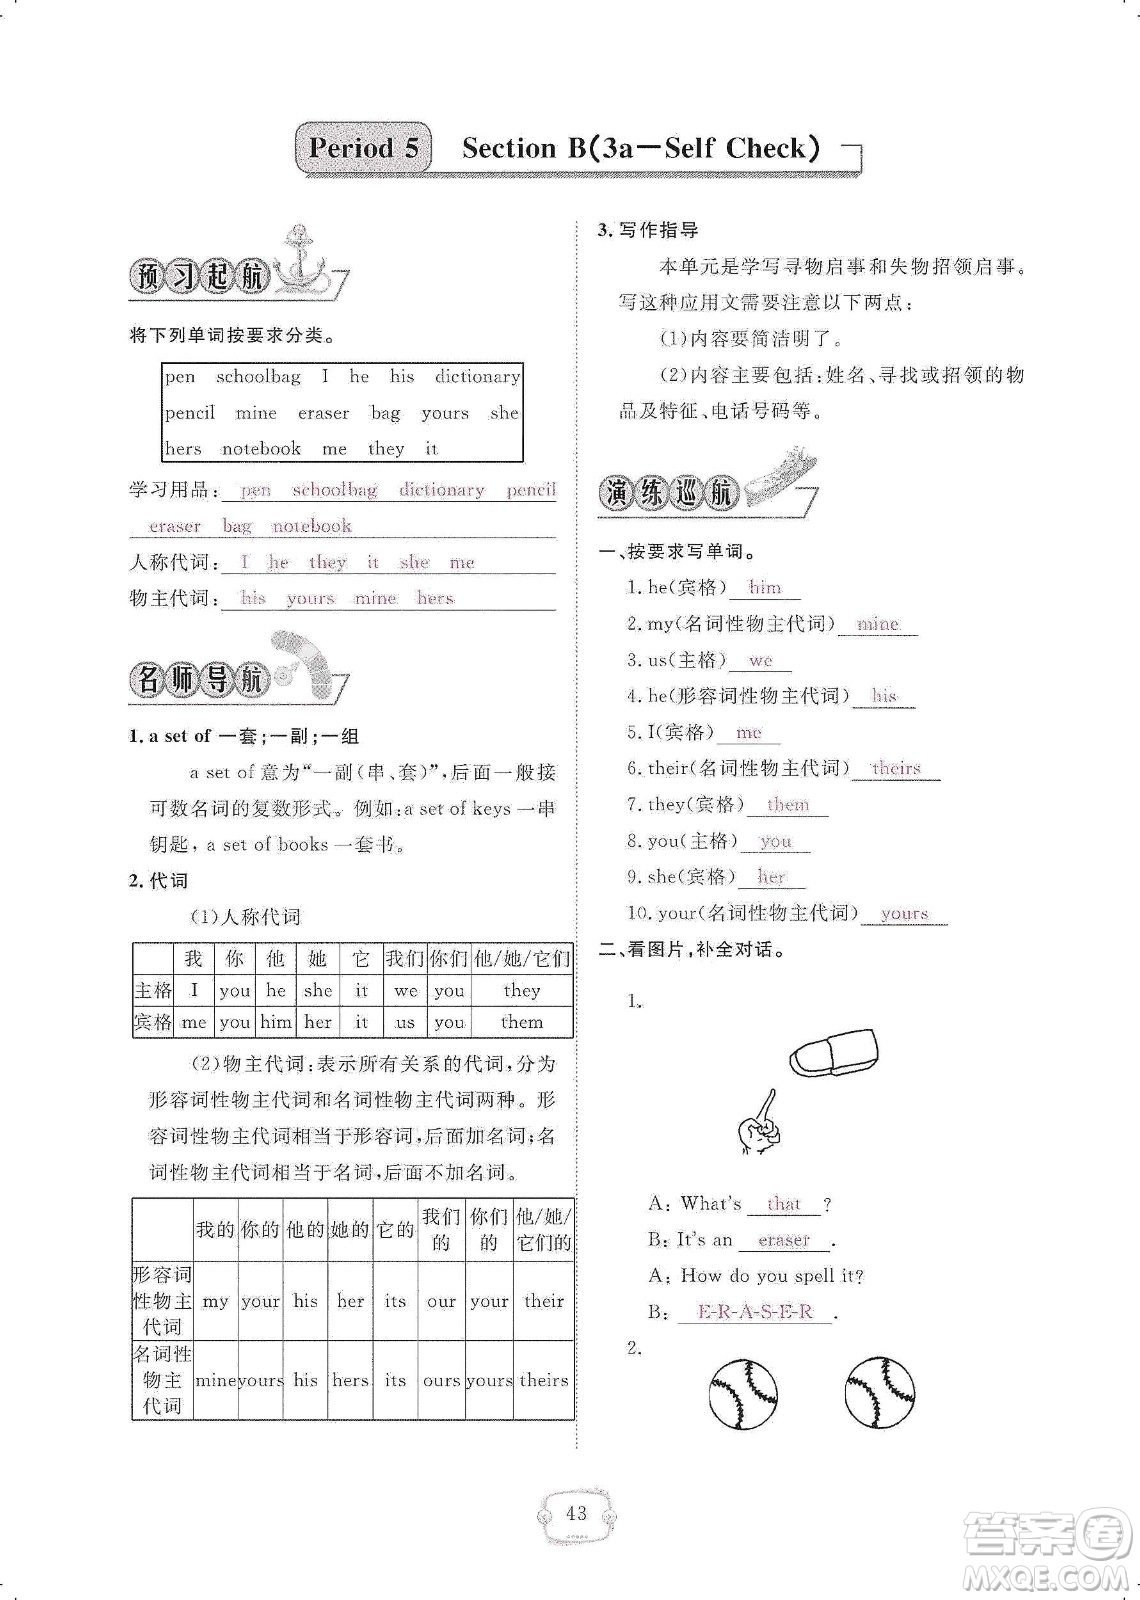 Period 5 Section B(3a—Self Check)
预习起航
将下列单词按要求分类。
pen schoolbag I he his dictionary
pencil mine eraser bag yours she
hers notebook me they it
学习用品: pen schoolbag dictionary pencil
eraser bag notebook
人称代词: I he they it she me
物主代词: his yours mine hers
名师导航
1. a set of 一套;一副;一组
a set of 意为“一副(串、套)”,后面一般接
可数名词的复数形式。例如:a set of keys 一串
钥匙, a set of books 一套书。
2. 代词
(1)人称代词
我 你 他 她 它 我们 你们 他/她/它们
主格 I you he she it we you they
宾格 me you him her it us you them
(2)物主代词:表示所有关系的代词,分为
形容词性物主代词和名词性物主代词两种。形
容词性物主代词相当于形容词,后面加名词;名
词性物主代词相当于名词,后面不加名词。
我的 你的 他的 她的 它的 我们的 你们的 他/她/它们的
形容词性物主代词 my your his her its our your their
名词性物主代词 mine yours his hers its ours yours theirs
3. 写作指导
本单元是学写寻物启事和失物招领启事。
写这种应用文需要注意以下两点:
(1)内容要简洁明了。
(2)内容主要包括:姓名、寻找或招领的物
品及特征、电话号码等。
演练巡航
一、按要求写单词。
1. he(宾格) him
2. my(名词性物主代词) mine
3. us(主格) we
4. he(形容词性物主代词) his
5. I(宾格) me
6. their(名词性物主代词) theirs
7. they(宾格) them
8. you(主格) you
9. she(宾格) her
10. your(名词性物主代词) yours
二、看图片,补全对话。
1.
A: What's that ?
B: It's an eraser .
A: How do you spell it?
B: E-R-A-S-E-R .
2.
43
答案圈
MXQE.COM